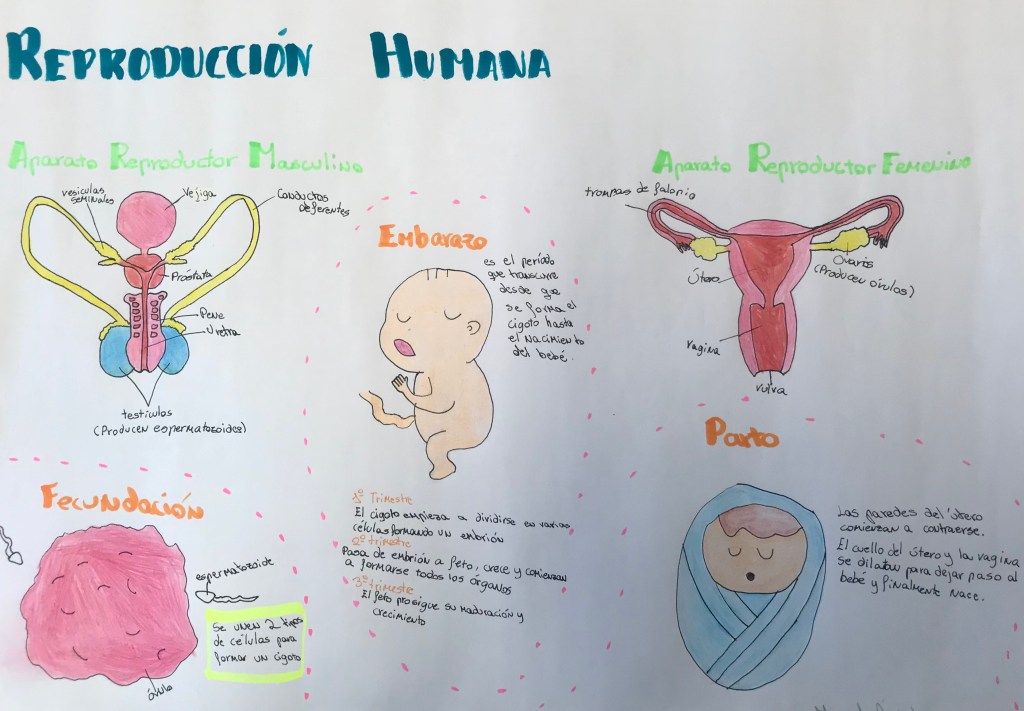 REPRODUCCIÓN HUMANA
APARATO REPRODUCTOR MASCULINO
vesiculas
seminales
Vejiga
Conductos
deferentes
Próstata
Pene
Uretra
testículos
(Producen espermatozoides)
EMBARAZO
es el período
que transcurre
desde que
se forma el
cigoto hasta
el nacimiento
del bebé.
1º Trimestre
El cigoto empieza a dividirse en varias
células formando un embrión
2º trimestre
Pasa de embrión a feto, crece y comienzan
a formarse todos los órganos
3º trimestre
El feto prosigue su maduración y
crecimiento
APARATO REPRODUCTOR FEMENINO
trompas de falopio
Útero
Ovarios
(Producen óvulos)
vagina
vulva
FECUNDACIÓN
espermatozoide
Se unen 2 tipos
de células para
formar un cigoto
óvulo
PARTO
Las paredes del útero
comienzan a contraerse.
El cuello del útero y la vagina
se dilatan para dejar paso al
bebé y finalmente nace.